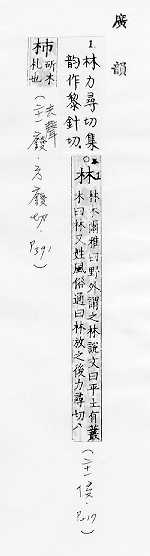 廣韻
1. 林力尋切集
韵作黎針切.
林 林木爾雅曰野外謂之林說文曰平土有叢
木曰林又姓風俗通曰林放之後力尋切八
(二十一侵.P.217)
柿 斫木
札也
去聲
(二十廢.方廢切.P.391)